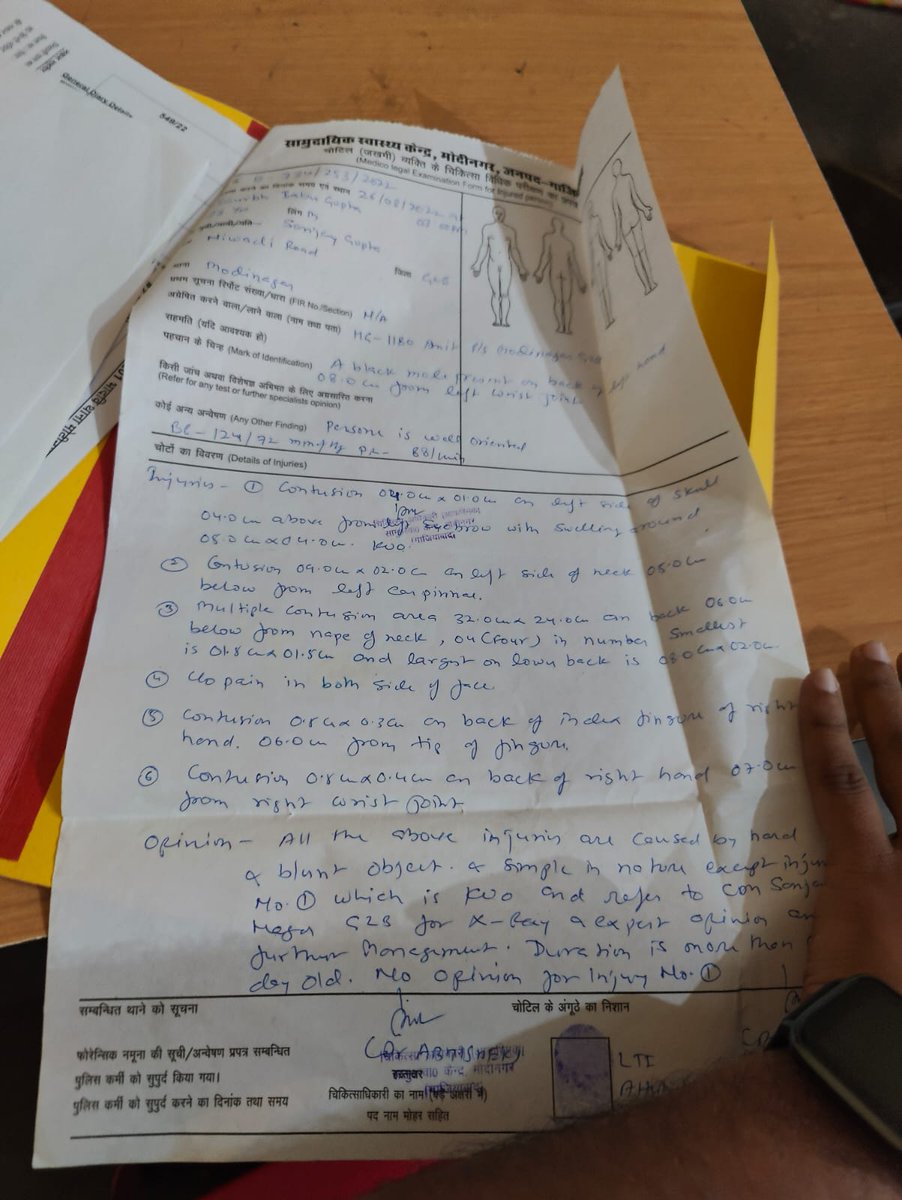 General Diary Details
549/22
सामुदायिक स्वास्थ्य केन्द्र, मोदीनगर, जनपद-गाजि
चोटिल (जख्मी) व्यक्ति के चिकित्सा विधिक परीक्षण का प्रपत्र
(Medico legal Examination Form for Injured person)
26/08/2022 at
Babu Gupta
लिंग M
Sanjay Gupta
Niwadi Road
थाना Modinagar
जिला GZB
प्रथम सूचना रिपोर्ट संख्या/धारा (FIR No./Section) N/A
अग्रेषित करने वाला/लाने वाला (नाम तथा पता) HC-1180 Amit P/S Modinagar GZB
सहमति (यदि आवश्यक हो)
पहचान के चिन्ह (Mark of Identification) A black mole present on back of left hand
08.0cm from left wrist joint
किसी जांच अथवा विशेषज्ञ अभिमत के लिए अग्रसारित करना
(Refer for any test or further specialists opinion)
कोई अन्य अन्वेषण (Any Other Finding) Persone is well oriented
124/72 mm/Hg PR- 88/min
चोटों का विवरण (Details of Injuries)
Injuries - ① Contusion 04.0cm x 01.0cm on left side of skull
04.0cm above from left eyebrow with swelling around
08.0cm x 04.0cm. KUO
② Contusion 09.0cm x 02.0cm on left side of neck 05.0cm
below from left ear pinnae.
③ Multiple contusion area 32.0cm x 24.0cm on back 06.0cm
below from nape of neck, 04 (four) in number smallest
is 01.8cm x 01.5cm and largest on lower back is 08.0cm x 02.0cm
④ C/o pain in both side of face
⑤ Contusion 0.8cm x 0.3cm on back of index fingure of right
hand. 06.0cm from tip of fingure.
⑥ Contusion 0.8cm x 0.4cm on back of right hand 07.0cm
from right wrist joint.
Opinion - All the above injuris are caused by hard
& blunt object. & simple in nature except injur
No. ① which is KUO and refer to
GZB for X-Ray & expert opinion an
further management. Duration is more than
day old. No opinion for Injury No. ①
सम्बन्धित थाने को सूचना
चोटिल के अंगूठे का निशान
फोरेन्सिक नमूना की सूची/अन्वेषण प्रपत्र सम्बन्धित
पुलिस कर्मी को सुपुर्द किया गया।
पुलिस कर्मी को सुपुर्द करने का दिनांक तथा समय
(Dr ABHISHEK)
हस्ताक्षर
चिकित्साधिकारी का नाम (बड़े अक्षरों में)
पद नाम मोहर सहित
LTI